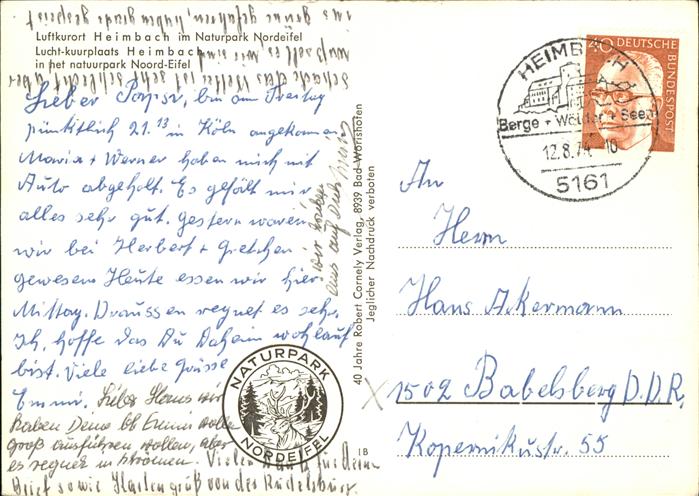 Luftkurort Heimbach im Naturpark Nordeifel
Lucht-kuurplaats Heimbach
in het natuurpark Noord-Eifel
Lieber Papsi, bin am Freitag
pünktlich 21.13 in Köln angekommen
Maria + Werner haben mich mit
Auto abgeholt. Es gefällt mir
alles sehr gut. Gestern waren
wir bei Herbert + Gretchen
gewesen Heute essen wir hier
Mittag. Draussen regnet es sehr.
Ich hoffe das Du Daheim wohlauf
bist. Viele liebe Grüsse
Emmi.
Liebe Hans wir
haben Deine Emmi
groß ausführen wollen, aber
es regnet in Strömen. Vielen Dank für deine
Brief sowie Karten gruß von der Rudelsburg.
Schade das Wetter ist sehr schlecht aber
ins grüne gefahren, haben gespeist
wir
uns auf Dich
40 Jahre Robert Cornely Verlag, 8939 Bad Wörishofen
Jeglicher Nachdruck verboten
NATURPARK
NORDEIFEL
IB
HEIMBACH
Berge + Wälder + Seen
12.8.74 10
5161
40 DEUTSCHE
BUNDESPOST
An
Herrn
Hans Ackermann
X 1502 Babelsberg D.D.R.
Kopernikustr. 55